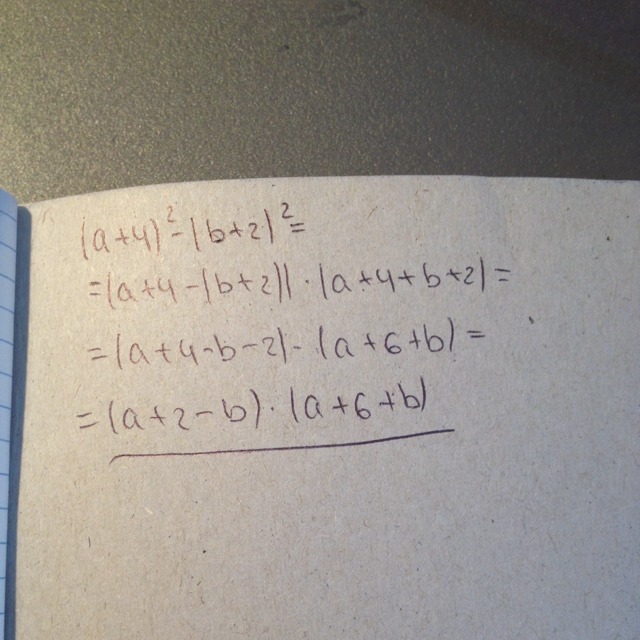 (a+4)²-(b+2)²=
=(a+4-(b+2))·(a+4+b+2)=
=(a+4-b-2)-(a+6+b)=
=(a+2-b)·(a+6+b)